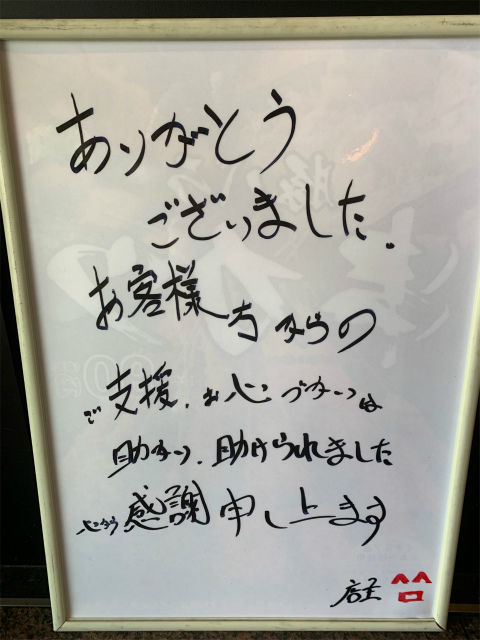 ありがとう
ございました.
お客様方からの
ご支援、お心づかいは
助かり、助けられました
心から感謝申し上ます
店主